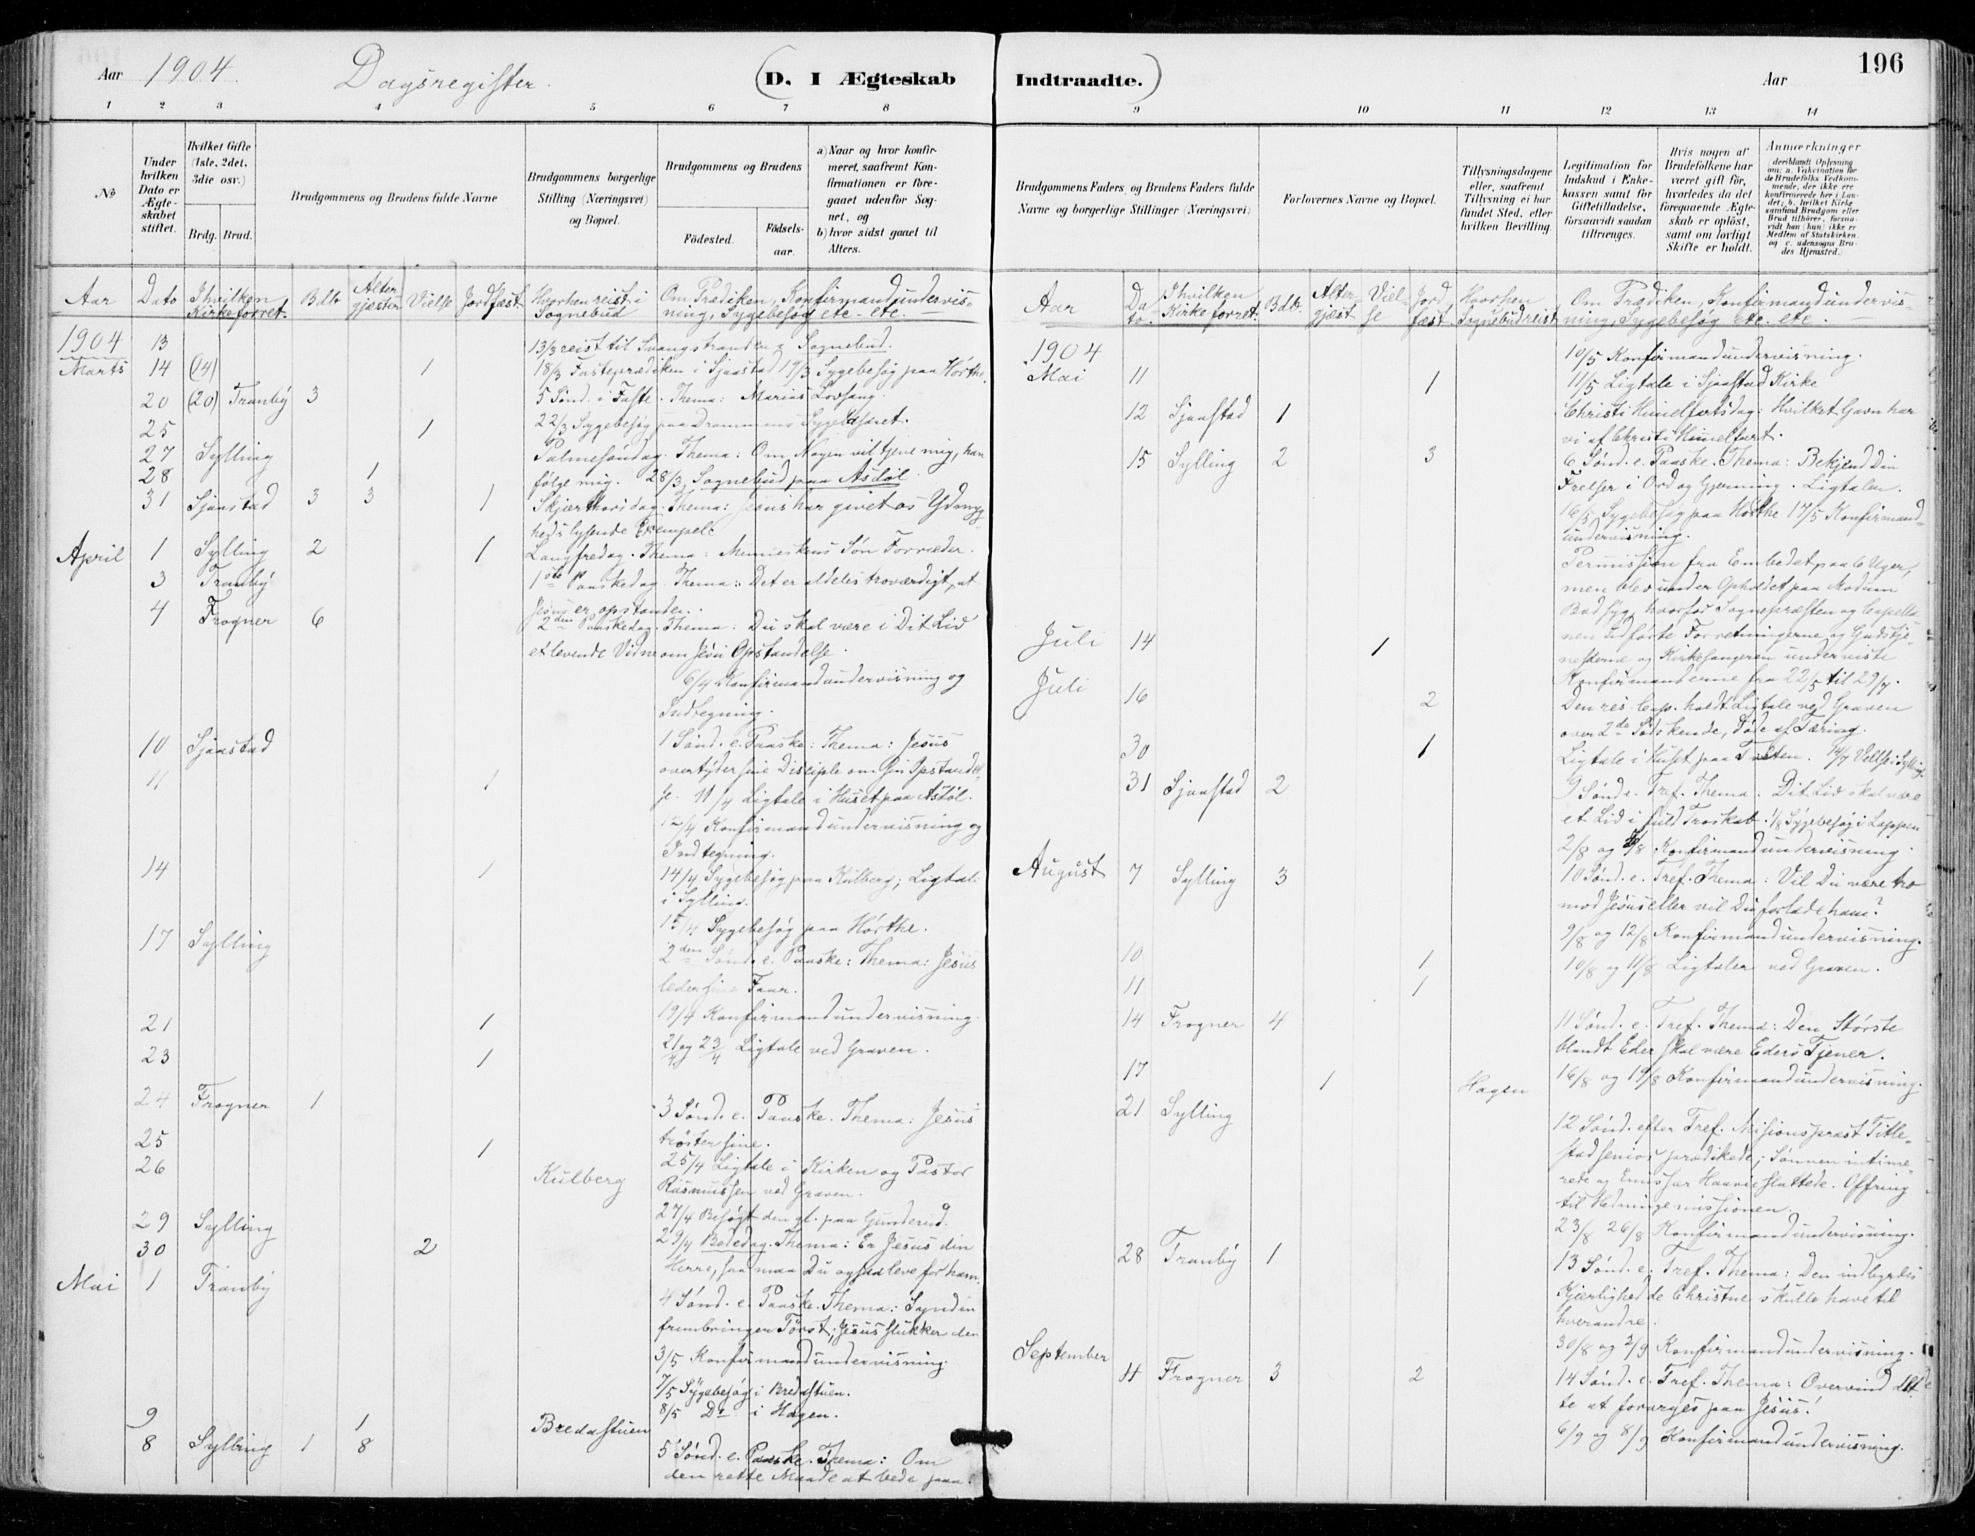 Aar 1904. Dagsregister. (D. I Ægteskab
1 2 3 4 5 6 7 8
№
Under hvilken Dato er Ægteskabet stiftet.
Hvilket Gifte (1ste, 2det, 3die osv.)
Brdg. Brud.
Brudgommens og Brudens fulde Navne
Brudgommens borgerlige Stilling (Næringsvei) og Bopæl.
Brudgommens og Brudens
Födested. Födselsaar.
a) Naar og hvor konfirmeret, saafremt Konfirmationen er foregaaet udenfor Sognet, og
b) hvor sidst gaaet til Alters.
Aar Dato I hvilken Kirke forret. Bdb Altergjæster Vielse Jordfæst. Hvorhen reist i Sognebud Om Prædiken, Konfirmandundervisning, Sygebesøg etc. etc.
1904 13 13/3 reist til Svangstranden i Sognebud.
Marts 14 (14) 1 18/3 Fasteprædiken i Sjaastad 19/3 Sygebesøg paa Hørthe.
20 (20) Tranby 3 5 Sønd. i Faste. Thema: Marias Lovsang.
25 1 22/3 Sygebesøg paa Drammens Sygelasaret.
27 Sylling Palmesøndag. Thema: Om Nogen vil tjene mig, han
28 1 følge mig. 28/3 Sognebud paa Asdøl.
31 Sjaastad 3 3 1 Skjærthorsdag. Thema: Jesus har givet os Ydmyg-
heds lysende Exempel.
April 1 Sylling 2 1 Langfredag. Thema: Menneskens Søn Forræder.
3 Tranby 1ste Paaskedag. Thema: Det er aldeles troværdigt, at
Jesus er opstanden.
4 Frogner 6 2den Paaskedag. Thema: Du skal være i Dit Liv
et levende Vidne om Jesu Opstandelse.
6/4 Konfirmandundervisning og
Indtegning.
10 Sjaastad 1 Sønd. e. Paaske: Thema: Jesus
overtyder sine Disciple om sin Opstandel-
11 1 se. 11/4 Ligtale i Huset paa Asdøl.
12/4 Konfirmandundervisning og
Indtegning.
14 1 14/4 Sygebesøg paa Kulberg; Ligtale
i Sylling.
15/4 Sygebesøg paa Hørthe.
17 Sylling 2den Sønd. e. Paaske: Thema: Jesus
leder sine Faar.
19/4 Konfirmandundervisning.
21 1 21/4 og 23/4 Ligtale ved Graven.
23 1
24 Frogner 1 3 Sønd. e. Paaske. Thema: Jesus
trøster sine.
25 1 25/4 Ligtale i Kirken og Pastor
26 Kulberg Rasmussen ved Graven.
27/4 Besøgt den gl. paa Gunderud.
29 Sylling 29/4 Bededag. Thema: Er Jesus din
30 2 Herre, saa maa Du ogsaa leve for ham.
Mai 1 Tranby 4 Sønd. e. Paaske. Thema: Synden
frembringer Tørst, Jesus slukker den
3/5 Konfirmandundervisning.
7/5 Sygebesøg i Bredastuen.
8/5 Do i Hagen.
9 1 Bredastuen
8 Sylling 1 8 5 Sønd. e. Paaske. Thema: Om
den rette Maade at bede paa.
Indtraadte.) Aar 196
9 10 11 12 13 14
Brudgommens Faders og Brudens Faders fulde Navne og borgerlige Stillinger (Næringsvei)
Forlovernes Navne og Bopæl.
Tillysningsdagene eller, saafremt Tillysning ei har fundet Sted, efter hvilken Bevilling.
Legitimation for Indskud i Enkekassen samt for Giftetilladelse, forsaavidt saadan tiltrænges.
Hvis nogen af Brudefolkene har været gift før, hvorledes da det foregaaende Ægteskab er oplöst, samt om lovligt Skifte er holdt.
Anmærkninger
deriblandt Oplysning om: a. Vakcination for de Brudefolks Vedkommende, der ikke ere konfirmerede her i Landet; b. hvilket Kirkesamfund Brudgom eller Brud tilhører, forsaavidt han (hun) ikke er Medlem af Statskirken, og c. udensogns Brudes Hjemsted.
Aar Dato. I hvilken Kirke forret. Bdb. Altergjæst. Vielse Jordfæst. Hvorhen Sognebud reist Om Prædiken, Konfirmandundervisning, Sygebesøg etc. etc.
1904 10/5 Konfirmandundervisning.
Mai 11 1 11/5 Ligtale i Sjaastad Kirke
12 Sjaastad 1 Christi Himelfartsdag: Hvilket Gavn har
vi af Christi Himelfart.
15 Sylling 2 3 6 Sønd. e. Paaske. Thema: Bekjend Din
Frelser i Ord og Gjerning. Ligtaler.
16/5 Sygebesøg paa Hørthe 17/5 Konfirmand-
undervisning.
Permission fra Embedet paa 6 Uger,
men blev under Opholdet paa Modum
Bad syg, hvorfor Sognepræsten og Capella-
nen udførte Forretningerne og Gudstje-
Juli 14 1 nesterne og Kirkesangeren underviste
Konfirmanderne fra 22/5 til 29/7.
Juli 16 2 Den res. Cap. holdt Ligtale ved Graven
over 2de Sødskende, døde af Tæring.
30 1 Ligtale i Huset paa Tveten. 14/7 Vielse i Sylling.
31 Sjaastad 2 9 Sønd. e. Tref. Thema: Dit Liv skal være
et Liv i fuld Troskab. 1/8 Sygebesøg i Lappen
2/8 og 5/8 Konfirmandundervisning.
August 7 Sylling 3 10 Sønd. e. Tref. Thema: Vil Du være tro
mod Jesus eller vil Du forlade ham?
9/8 og 12/8 Konfirmandundervisning.
10 1 10/8 og 11/8 Ligtaler ved Graven.
11 1
14 Frogner 4 11 Sønd. e. Tref. Thema: Den Største
blandt Eder skal være Eders Tjener.
17 1 Hagen 16/8 og 19/8 Konfirmandundervisning.
21 Sylling
12 Sønd. efter Tref. Misionsprest Title-
stad senior prædikede; Sønnen intime-
rede og Emissær Haavi sluttede. Offring
til Hedningemissionen.
23/8 26/8 Konfirmandundervisning.
28 Tranby 1 13 Sønd. e. Tref. Thema: Den indbyrdes
Kjærlighed de Christne skulle have til
hverandre.
September 30/8 og 2/9 Konfirmandundervisning.
4 Frogner 3 2 14 Sønd. e. Tref. Thema: Overvind
te at forarges paa Jesus!
6/9 og 8/9 Konfirmandundervisning.